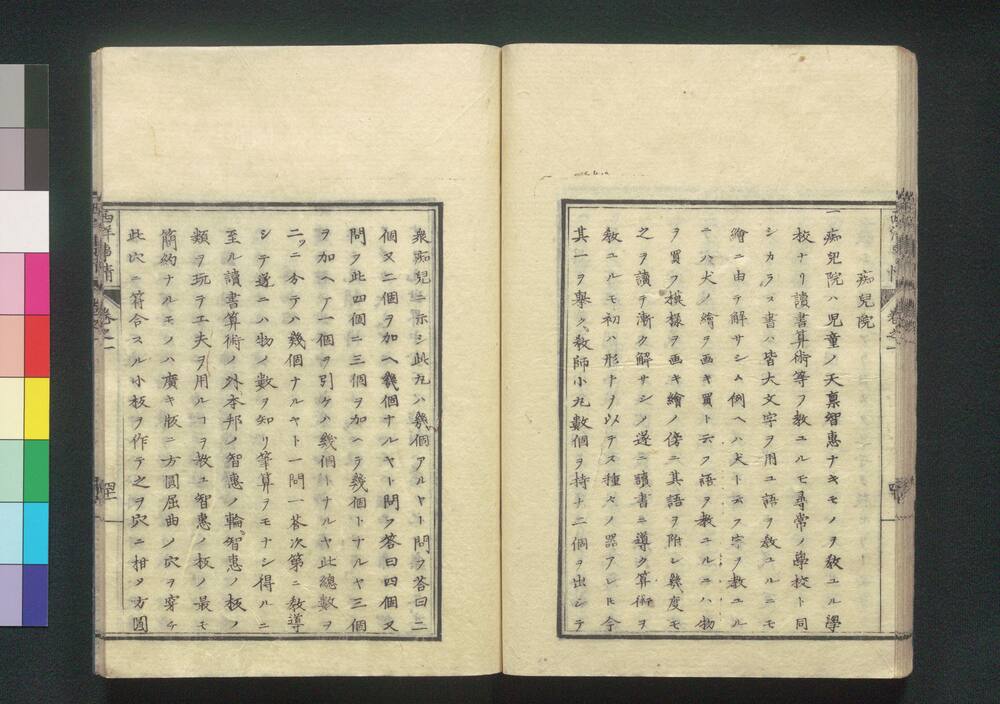 痴兒院
一痴兒院ハ児童ノ天稟智惠ナキモノヲ教ユル學
校ナリ讀書算術等ヲ教ユルモ尋常ノ學校ト同
シカラス書ハ皆大文字ヲ用ユ語ヲ教ユルニモ
繪ニ由テ解サシム例ヘハ犬ト云フ字ヲ教ユル
ニハ犬ノ繪ヲ画キ買ト云フ語ヲ教ユルニハ物
ヲ買フ摸樣ヲ画キ繪ノ傍ニ其語ヲ附シ幾度モ
之ヲ讀テ漸ク解サシメ遂ニ讀書ニ導ク算術ヲ
教ユルモ初ハ形ヲ以テス種々ノ器アレ𪜈今
其一ヲ擧ク教師小丸數個ヲ持ナ二個ヲ出シテ
衆痴兒ニ示シ此丸ハ幾個アルヤト問フ答曰二
個又二個ヲ加ヘ幾個ナルヤト問フ答曰四個又
問フ此四個ニ三個ヲ加ヘテ幾個トナルヤ三個
ヲ加ヘテ一個ヲ引ケハ幾個トナルヤ此總數ヲ
二ツニ分テハ幾個ナルヤト一問一荅次第ニ教導
シテ遂ニハ物ノ數ヲ知リ筆算ヲモナシ得ルニ
至ル讀書算術ノ外本邦ノ智惠ノ輪智惠ノ板ノ
類ヲ玩テ工夫ヲ用ルヿヲ教ユ智惠ノ板ノ最モ
簡約ナルモノハ廣キ版ニ方圓屈曲ノ穴ヲ穿ケ
此穴ニ符合スル小板ヲ作テ之ヲ穴ニ相タ方圓
卷之一